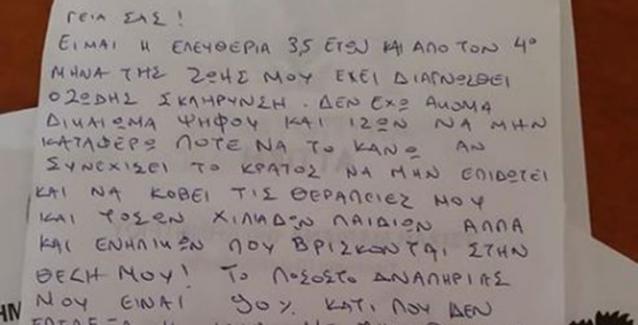 ΓΕΙΑ ΣΑΣ!
ΕΙΜΑΙ Η ΕΛΕΥΘΕΡΙΑ 3,5 ΕΤΩΝ ΚΑΙ ΑΠΟ ΤΟΝ 4º
ΜΗΝΑ ΤΗΣ ΖΩΗΣ ΜΟΥ ΕΧΕΙ ΔΙΑΓΝΩΣΘΕΙ
ΟΖΩΔΗΣ ΣΚΛΗΡΥΝΣΗ. ΔΕΝ ΕΧΩ ΑΚΟΜΑ
ΔΙΚΑΙΩΜΑ ΨΗΦΟΥ ΚΑΙ ΙΣΩΝ ΝΑ ΜΗΝ
ΚΑΤΑΦΕΡΩ ΠΟΤΕ ΝΑ ΤΟ ΚΑΝΩ ΑΝ
ΣΥΝΕΧΙΣΕΙ ΤΟ ΚΡΑΤΟΣ ΝΑ ΜΗΝ ΕΠΙΔΟΤΕΙ
ΚΑΙ ΝΑ ΚΟΒΕΙ ΤΙΣ ΘΕΡΑΠΕΙΕΣ ΜΟΥ
ΚΑΙ ΤΟΣΩΝ ΧΙΛΙΑΔΩΝ ΠΑΙΔΙΩΝ ΑΛΛΑ
ΚΑΙ ΕΝΗΛΙΚΩΝ ΠΟΥ ΒΡΙΣΚΟΝΤΑΙ ΣΤΗΝ
ΘΕΣΗ ΜΟΥ! ΤΟ ΠΟΣΟΣΤΟ ΑΝΑΠΗΡΙΑΣ
ΜΟΥ ΕΙΝΑΙ 90% ΚΑΤΙ ΠΟΥ ΔΕΝ